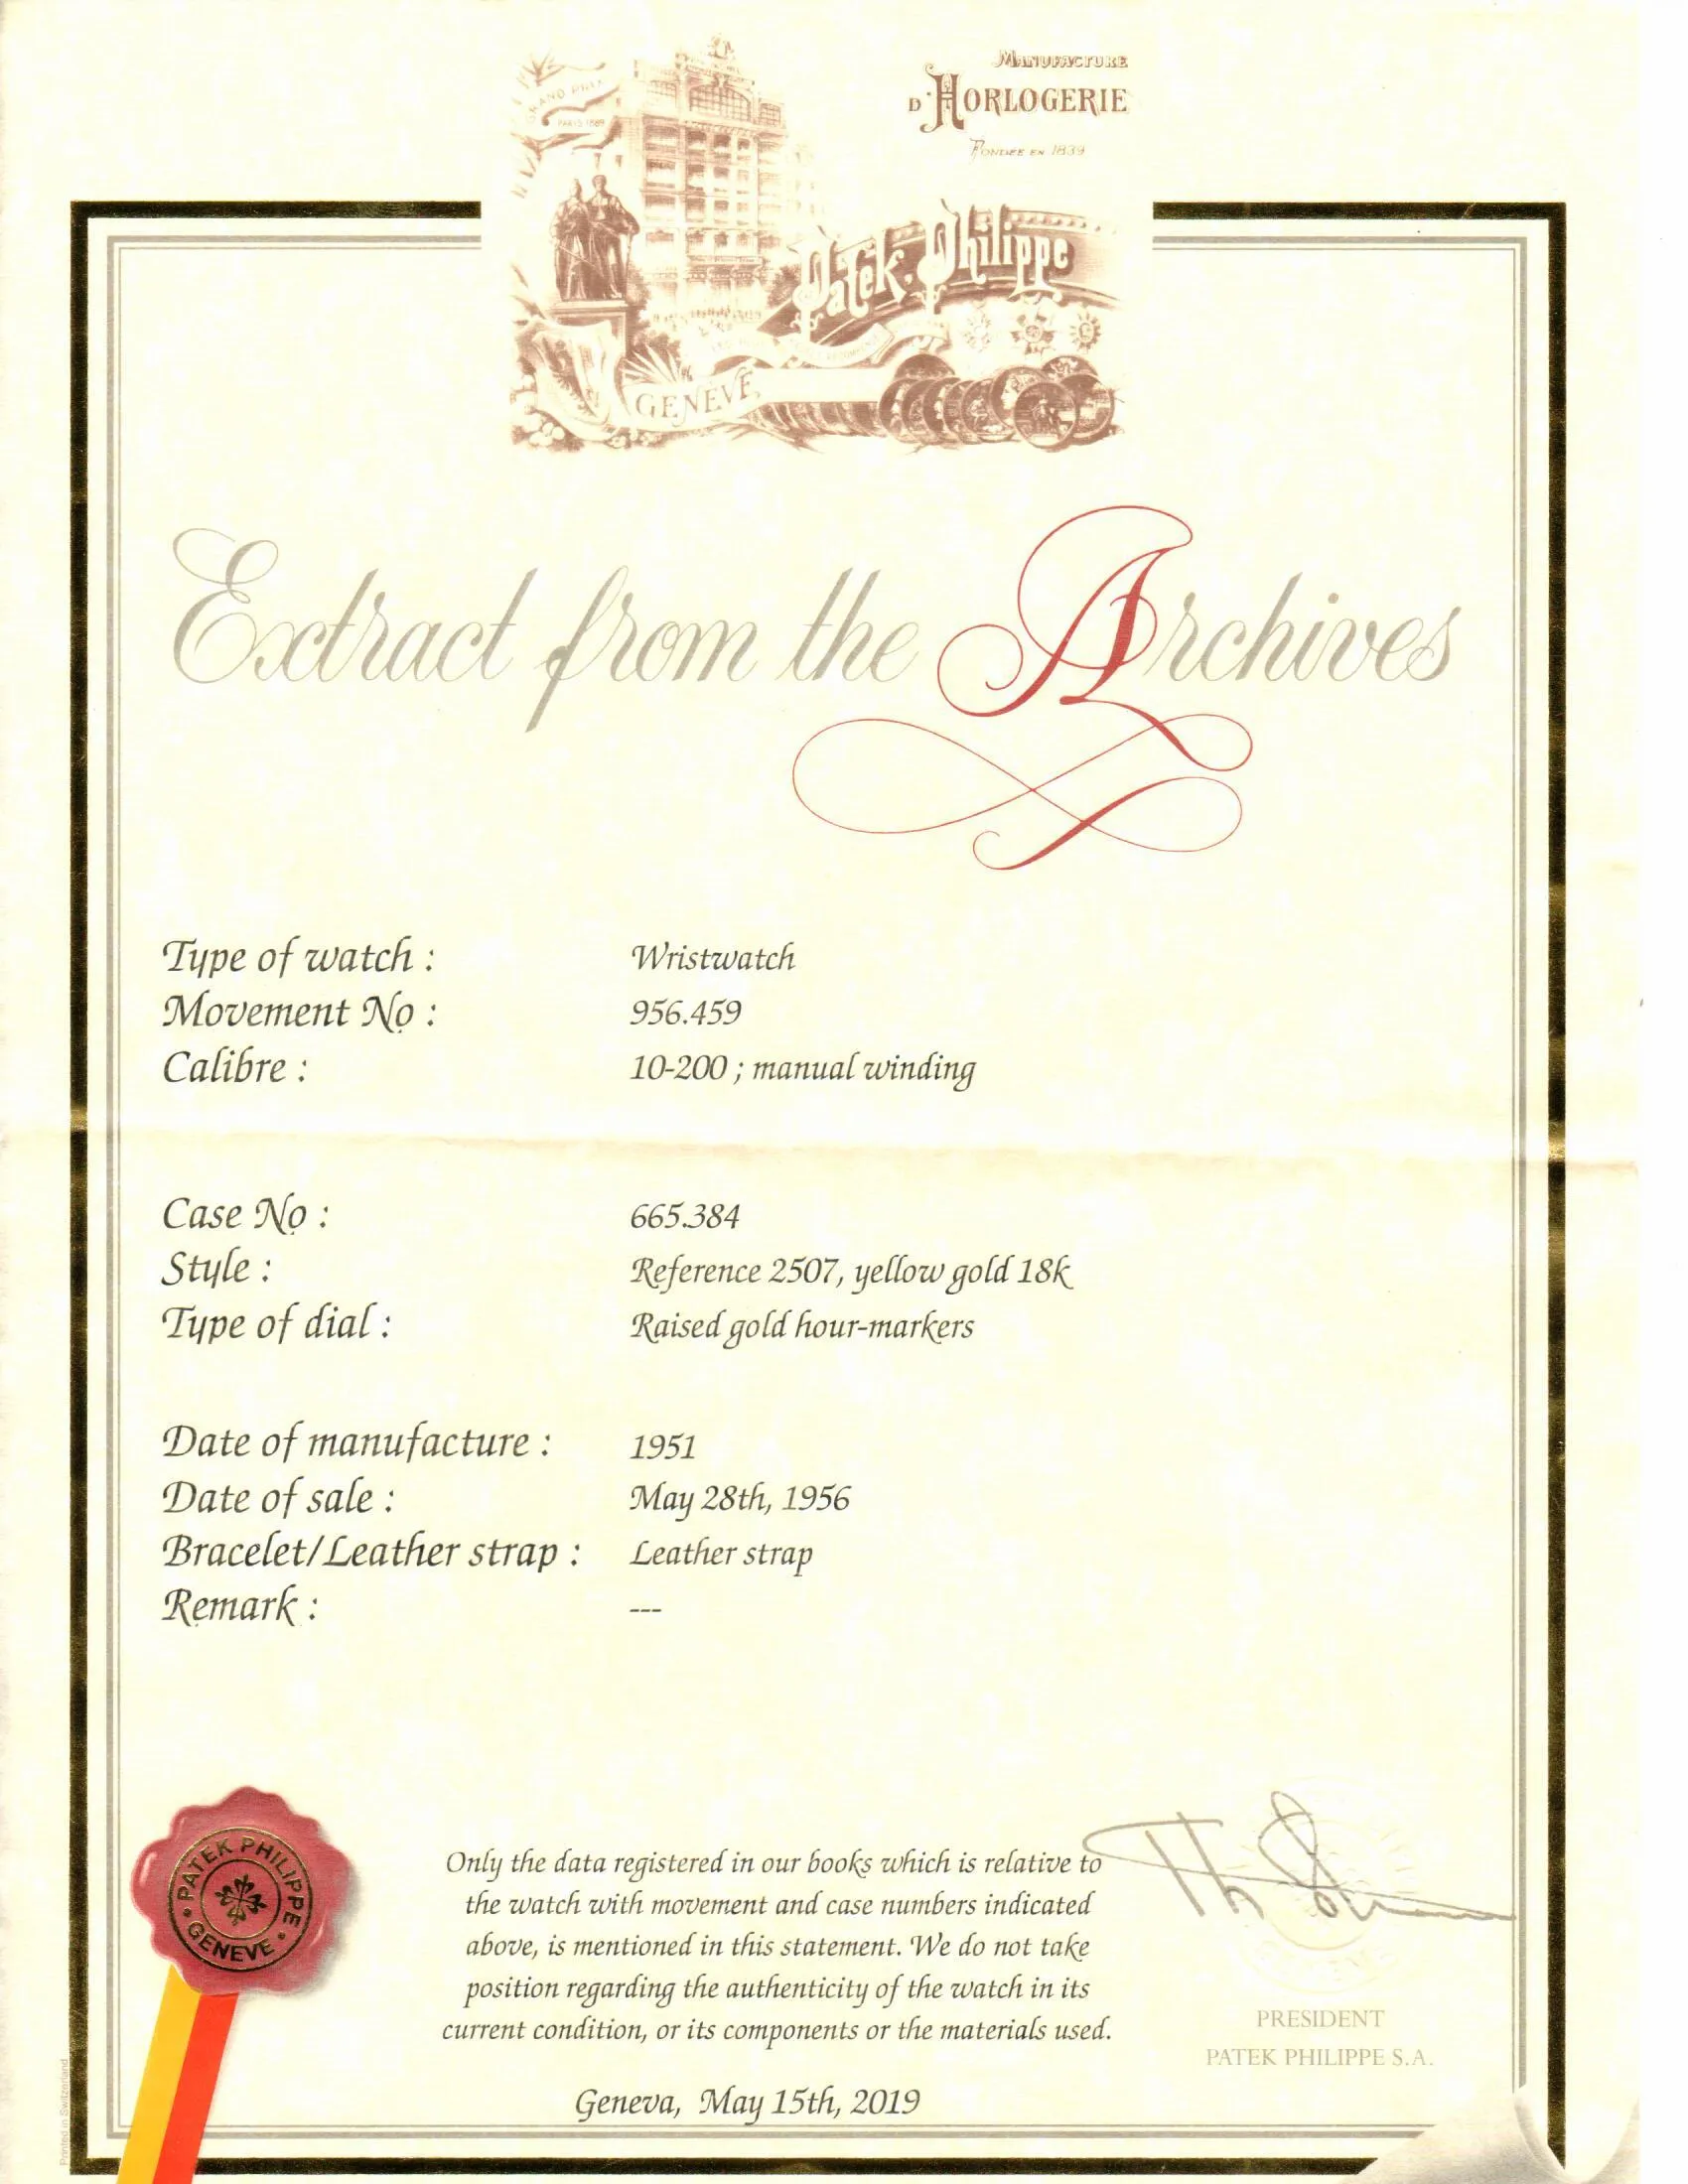 MANUFACTURE
D'HORLOGERIE
FONDÉE EN 1839
GRAND PRIX
PARIS 1889
Patek. Philippe
GENÈVE
Extract from the Archives
Type of watch : Wristwatch
Movement No : 956.459
Calibre : 10-200 ; manual winding
Case No : 665.384
Style : Reference 2507, yellow gold 18k
Type of dial : Raised gold hour-markers
Date of manufacture : 1951
Date of sale : May 28th, 1956
Bracelet/Leather strap : Leather strap
Remark : ---
PATEK PHILIPPE
GENEVE
Only the data registered in our books which is relative to
the watch with movement and case numbers indicated
above, is mentioned in this statement. We do not take
position regarding the authenticity of the watch in its
current condition, or its components or the materials used.
PRESIDENT
PATEK PHILIPPE S.A.
Geneva, May 15th, 2019
Printed in Switzerland